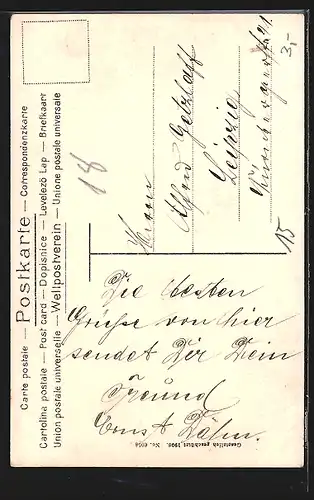 Carte postale — Postkarte — Correspondenzkarte
Cartolina postale — Post card — Dopisnice — Levelező Lap — Briefkaart
Union postale universelle — Weltpostverein — Unione postale universale
18
3,-
Herrn
Alfred Getzlaff
Leipzig
Nürnbergerstr. 21.
15
Die besten
Grüsse von hier
sendet Dir Dein
Freund
Ernst Dähn.
Gesetzlich geschützt 1906. No.